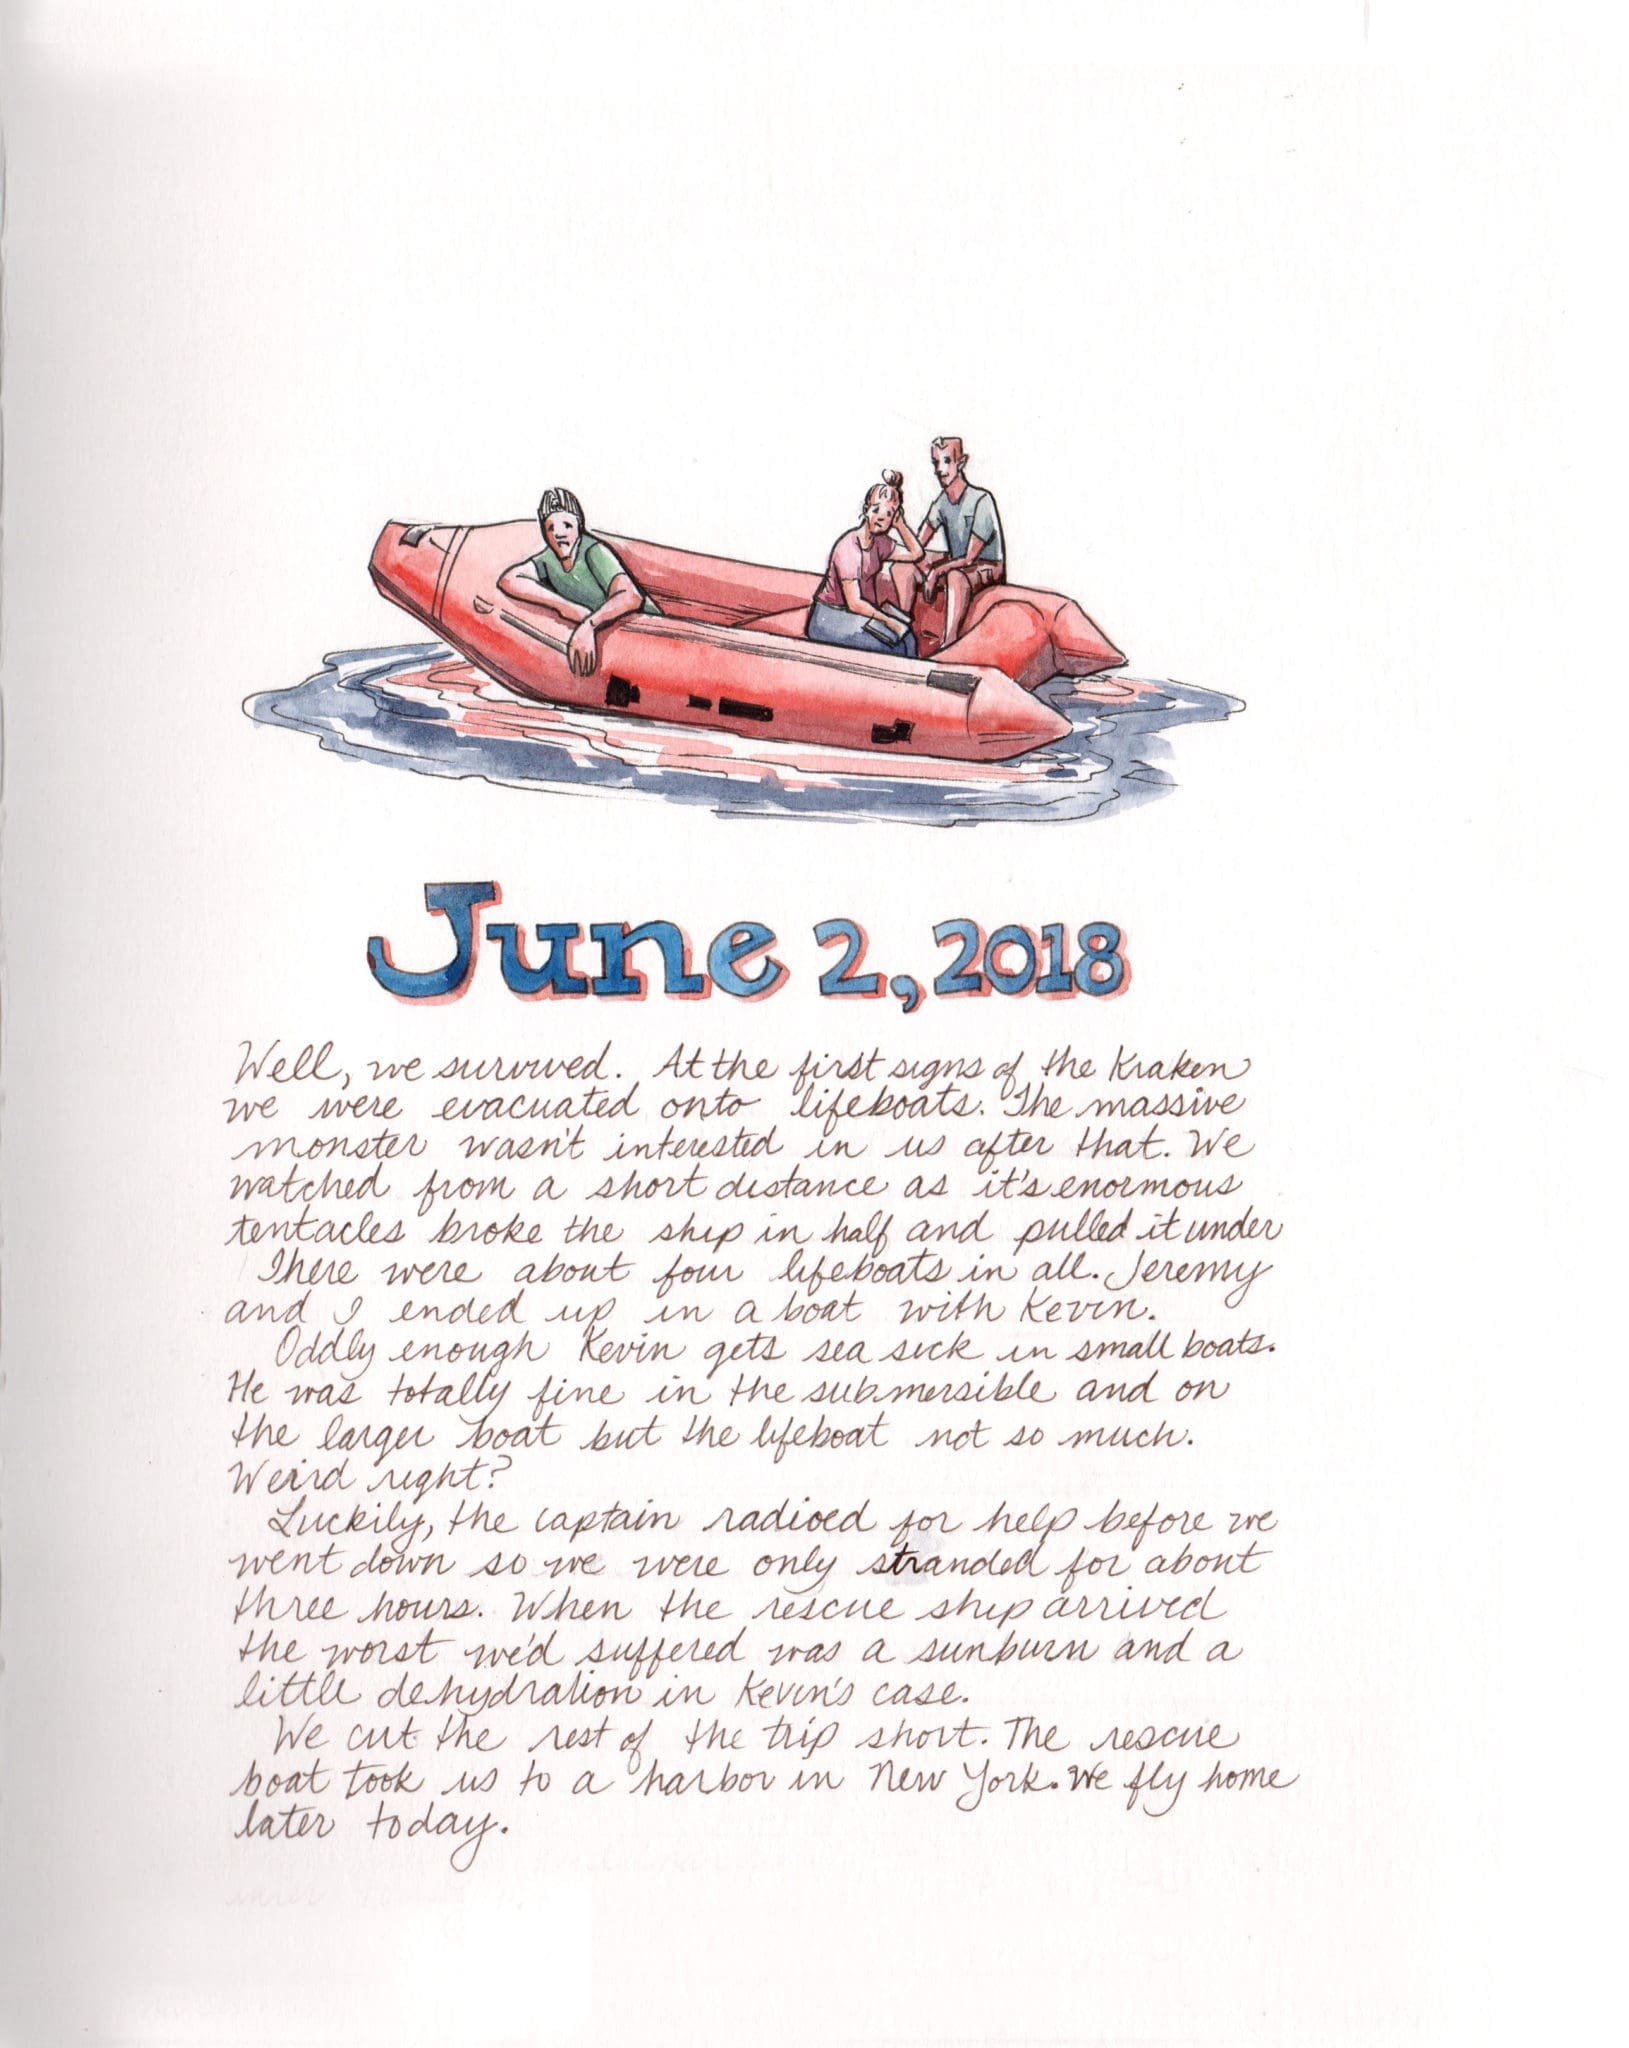 June 2, 2018
Well, we survived. At the first signs of the Kraken
we were evacuated onto lifeboats. The massive
monster wasn't interested in us after that. We
watched from a short distance as it's enormous
tentacles broke the ship in half and pulled it under
There were about four lifeboats in all. Jeremy
and I ended up in a boat with Kevin.
Oddly enough Kevin gets sea sick in small boats.
He was totally fine in the submersible and on
the larger boat but the lifeboat not so much.
Weird right?
Luckily, the captain radioed for help before we
went down so we were only stranded for about
three hours. When the rescue ship arrived
the worst we'd suffered was a sunburn and a
little dehydration in Kevin's case.
We cut the rest of the trip short. The rescue
boat took us to a harbor in New York. We fly home
later today.